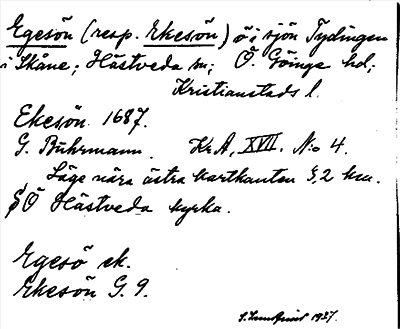 Egesön (resp. Ekesön) ö i sjön Tydingen
i Skåne; Hästveda sn; Ö. Göinge hd;
Kristianstads l.
Ekesön 1687.
G. Buhrmann. Kr.A, XVII. No 4.
Läge nära östra kartkanten 3,2 km.
SÖ Hästveda kyrka.
Egesö ek.
Ekesön G. 9.
1927.